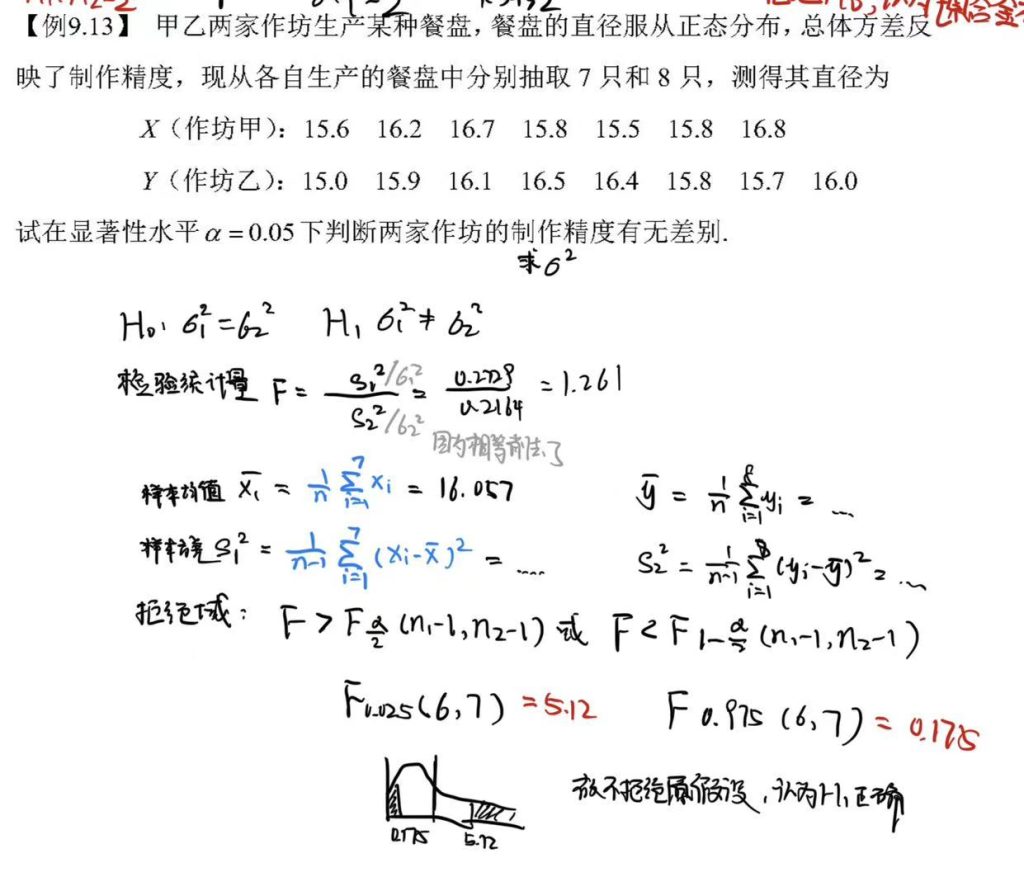 【例9.13】 甲乙两家作坊生产某种餐盘，餐盘的直径服从正态分布，总体方差反
映了制作精度，现从各自生产的餐盘中分别抽取 7 只和 8 只，测得其直径为
X（作坊甲）：15.6 16.2 16.7 15.8 15.5 15.8 16.8
Y（作坊乙）：15.0 15.9 16.1 16.5 16.4 15.8 15.7 16.0
试在显著性水平 α = 0.05 下判断两家作坊的制作精度有无差别.
求 σ²
H₀: σ₁² = σ₂² H₁ σ₁² ≠ σ₂²
检验统计量 F = (S₁²/σ₁²)/(S₂²/σ₂²) = 0.2729/0.2164 = 1.261
因为相等消了
样本均值 x̄₁ = 1/n ∑ᵢ₌₁⁷ xᵢ = 16.057 ȳ = 1/n ∑ᵢ₌₁⁸ yᵢ = ...
样本方差 S₁² = 1/(n-1) ∑ᵢ₌₁⁷ (xᵢ-x̄)² = .... S₂² = 1/(n-1) ∑ᵢ₌₁⁸ (yᵢ-ȳ)² = ...
拒绝域： F > F α/2 (n₁-1, n₂-1) 或 F < F 1-α/2 (n₁-1, n₂-1)
F₀.₀₂₅(6,7) = 5.12 F 0.975 (6,7) = 0.175
故不拒绝原假设，认为H₁正确
0.175 5.12